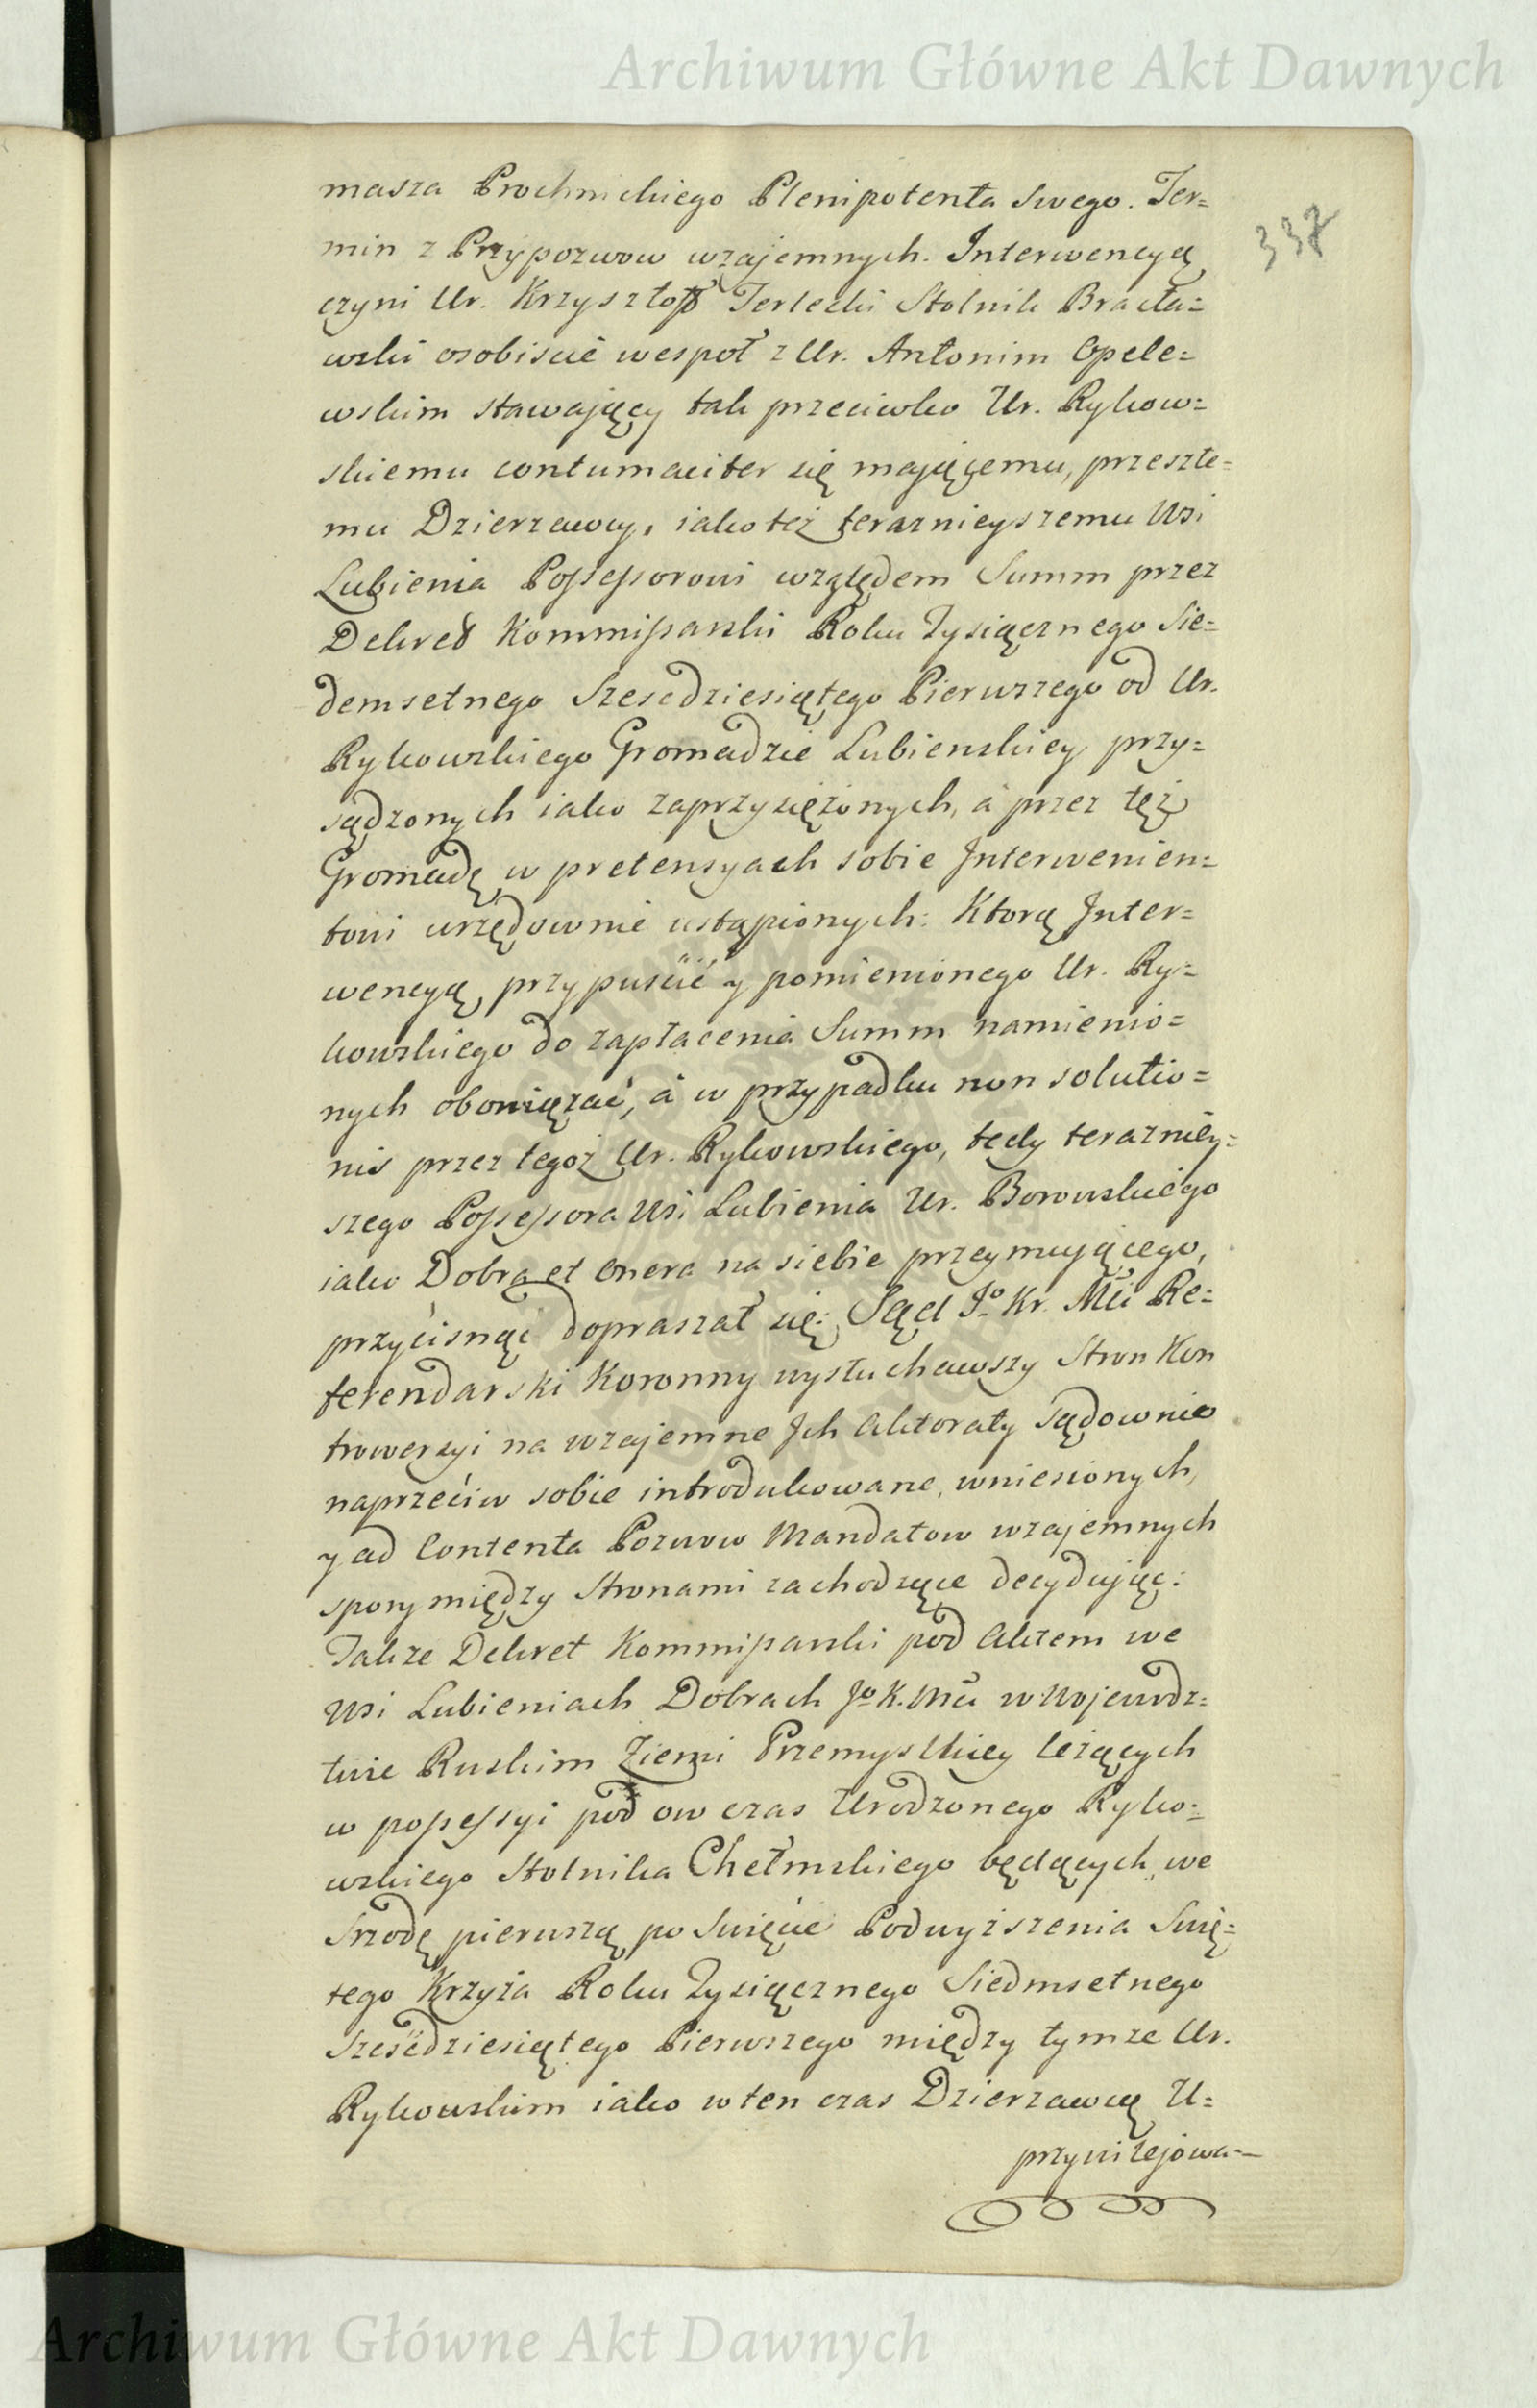 Archiwum Główne Akt Dawnych
337
masza Prochnickiego Plenipotenta swego. Ter=
min z Przypozwow wzajemnych. Interwencyą
czyni Ur. Krzysztoff Terlecki Stolnik Bracła=
wski osobiscie wespoł z Ur. Antonim Opele=
wskim stawaiący tak przeciwko Ur. Rykow=
skiemu contumaciter się maiącemu, przeszłe=
mu Dzierzawcy, iako też teraznieyszemu Wsi
Lubienia Possessorowi względem Summ przez
Dekret Kommissarski Roku Tysiącznego Sie=
demsetnego Szescdziesiątego Pierwszego od Ur.
Rykowskiego Gromadzie Lubienskiey przy=
sądzonych iako zaprzysiężonych, a przez tęż
Gromadę w pretensyach sobie Interwenien=
towi urzędownie ustąpionych: Ktorą Inter=
wencyą przypuścić y pomienionego Ur. Ry=
kowskiego do zapłacenia Summ namienio=
nych obowiązać, a w przypadku non solutio=
nis przez tegoż Ur. Rykowskiego, tedy terazniey=
szego Possessora Wsi Lubienia Ur. Borowskiego
iako Dobra et Onera na siebie przeymuiącego,
przycisnąć dopraszał się: Sąd Jo Kr. Mci Re=
ferendarski Koronny wysłuchawszy Stron Kon
trowersyi na wzajemne Jch Aktoraty sądownie
naprzeciw sobie introdukowane, wniesionych,
y ad Contenta Pozwow Mandatow wzajemnych
spory między Stronami zachodzące decyduiąc:
Jakze Dekret Kommissarski pod Aktem we
Wsi Lubieniach Dobrach Jo K. Mci w Wojewodz=
twie Ruskim Ziemi Przemyskiey leżących
w possessyi pod ow czas Urodzonego Ryko=
wskiego Stolnika Chełmskiego będących, we
Srzodę pierwszą po Swięcie Podwyższenia Swię=
tego Krzyża Roku Tysiącznego Siedmsetnego
Sześcdziesiątego Pierwszego między tymze Ur.
Rykowskim iako w ten czas Dzierzawcą U=
przywilejowa=
Archiwum Główne Akt Dawnych